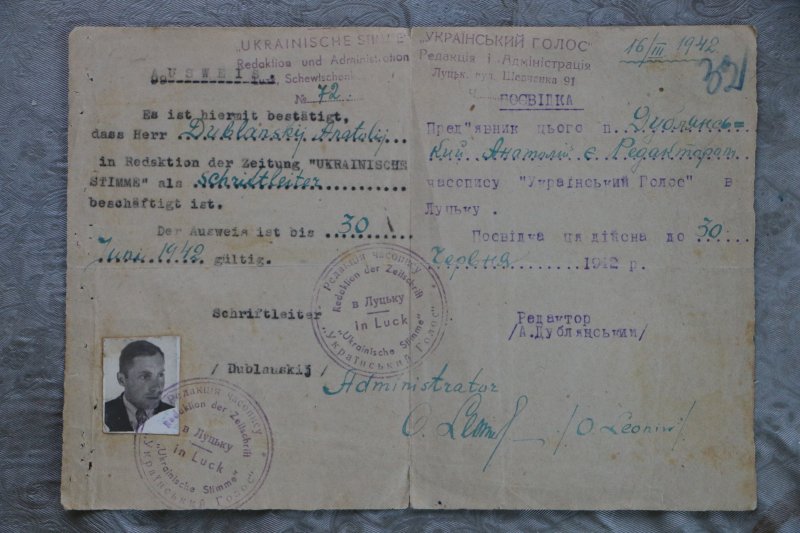 "UKRAINISCHE STIMME"
Redaktion und Administration
AUSWEIS
Schewtschenk
№ 72.
Es ist hiermit bestätigt,
dass Herr Dublansky Anatolij
in Redaktion der Zeitung "UKRAINISCHE
STIMME" als Schriftleiter
beschäftigt ist.
Der Ausweis ist bis 30
Juni 1942 gültig.
Schriftleiter
/ Dublanskij /
"УКРАЇНСЬКИЙ ГОЛОС"
Редакція і Адміністрація
Луцьк, вул. Шевченка 91
16/III 1942.
321
ПОСВІДКА
Пред"явник цього п. Дублянсь=
кий Анатолій є Редактором
часопису "Український Голос" в
Луцьку.
Посвідка ця дійсна до 30
Червня 1942 р.
Редактор
/А.Дублянський/
Administrator
/O. Leoniw/
Редакція часопису
Redaktion der Zeitschrift
в Луцьку
in Luck
"Ukrainische Stimme"
"Український Голос"
Редакція часопису
Redaktion der Zeitschrift
в Луцьку
in Luck
"Ukrainische Stimme"
"Український Голос"